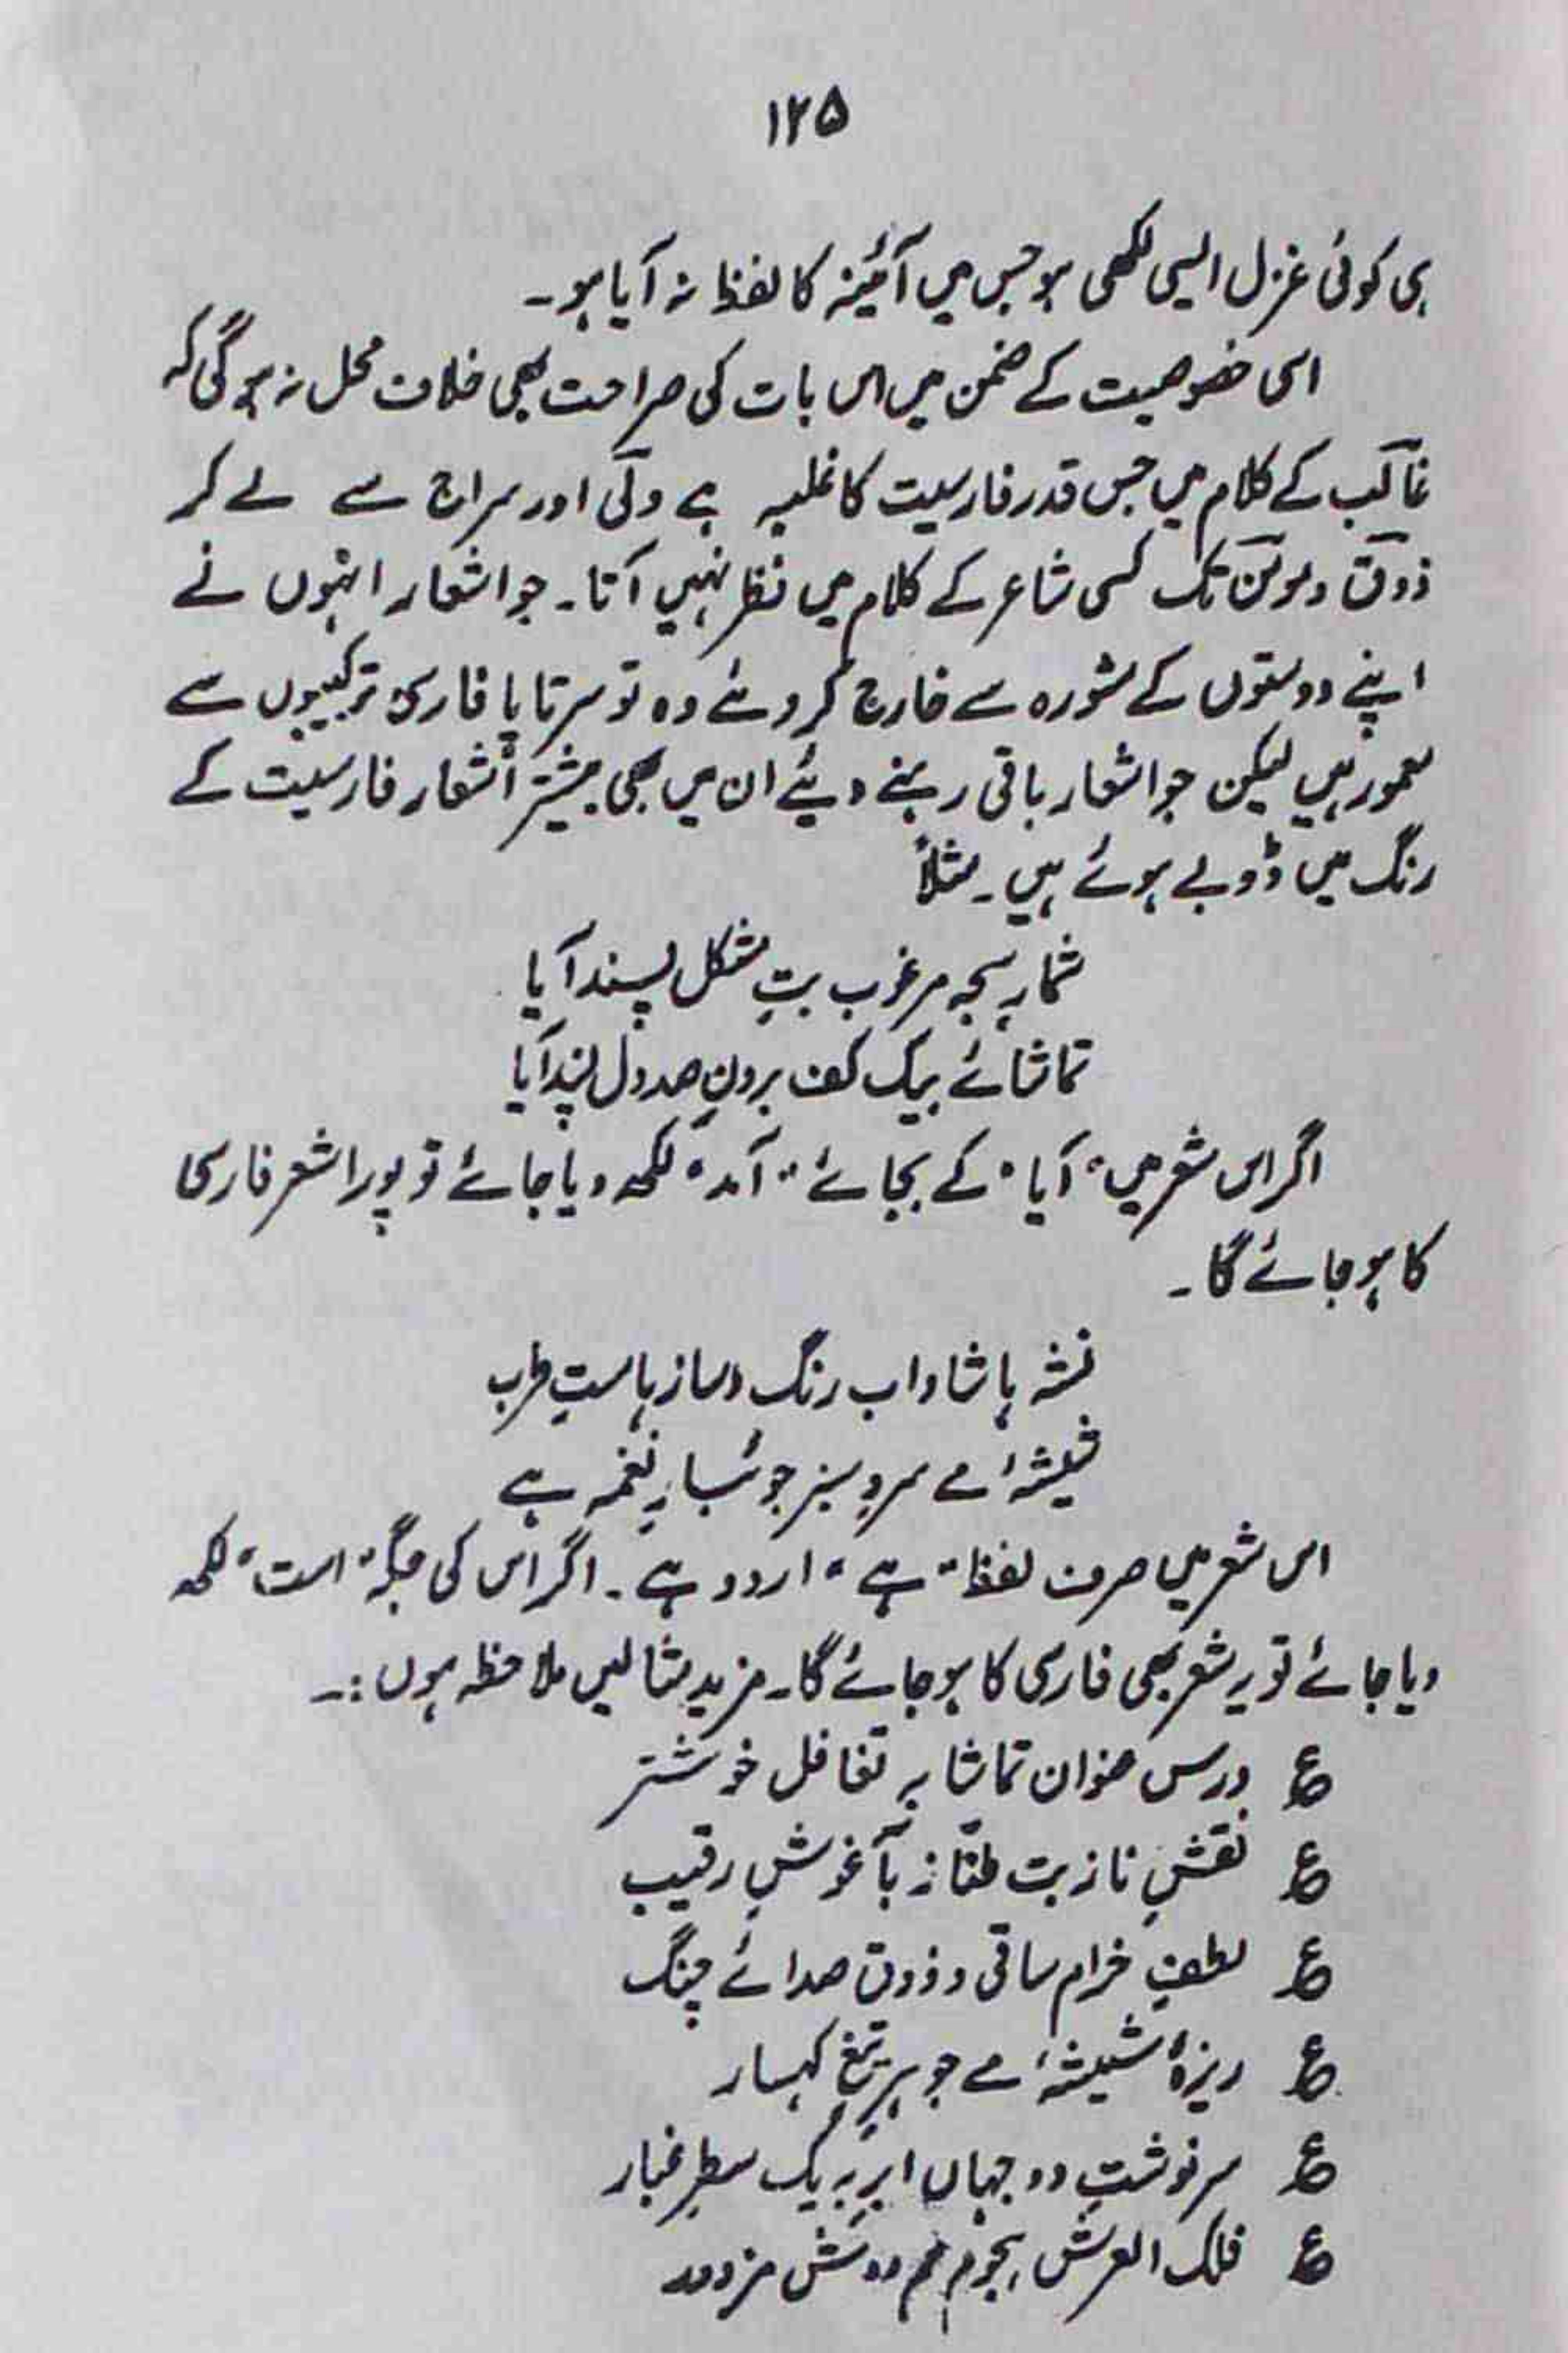 ۱۲۵
ہی کوئی غزل ایسی لکھی ہو جس میں آئینہ کا لفظ نہ آیا ہو۔
اسی خصوصیت کے ضمن میں اس بات کی صراحت بھی خلاف محل نہ ہوگی کہ
غالب کے کلام میں جس قدر فارسیت کا غلبہ ہے ولی اور سراج سے لے کر
ذوق و مومن تک کسی شاعر کے کلام میں نظر نہیں آتا۔ جو اشعار انہوں نے
اپنے دوستوں کے مشورہ سے خارج کر دئے وہ تو سرتاپا فارسی ترکیبوں سے
معمور ہیں لیکن جو اشعار باقی رہنے دیئے ان میں بھی بیشتر اشعار فارسیت کے
رنگ میں ڈوبے ہوئے ہیں۔ مثلاً
شمارِ سبحہ مرغوب بتِ مشکل پسند آیا
تماشائے بیک کف بردنِ صد دل پسند آیا
اگر اس شعر میں "آیا" کے بجائے "آمد" لکھ دیا جائے تو پورا شعر فارسی
کا ہو جائے گا۔
نشہ ہا شاداب رنگ و ساز ہا مستِ طرب
شیشۂ مے سروِ سبز جوئبارِ نغمہ ہے
اس شعر میں صرف لفظ "ہے" اردو ہے۔ اگر اس کی جگہ "است" لکھ
دیا جائے تو یہ شعر بھی فارسی کا ہو جائے گا۔ مزید مثالیں ملاحظہ ہوں:۔
ع درس عنوان تماشا بہ تغافل خوشتر
ع نقشِ ناز بت طنّاز بآغوشِ رقیب
ع لطفِ خرام ساقی و ذوق صدائے چنگ
ع ریزۂ شیشۂ مے جوہرِ تیغ کہسار
ع سرنوشتِ دو جہاں ابر بہ یک سطرِ غبار
ع فلک العرش ہجوم خم دوش مزدور